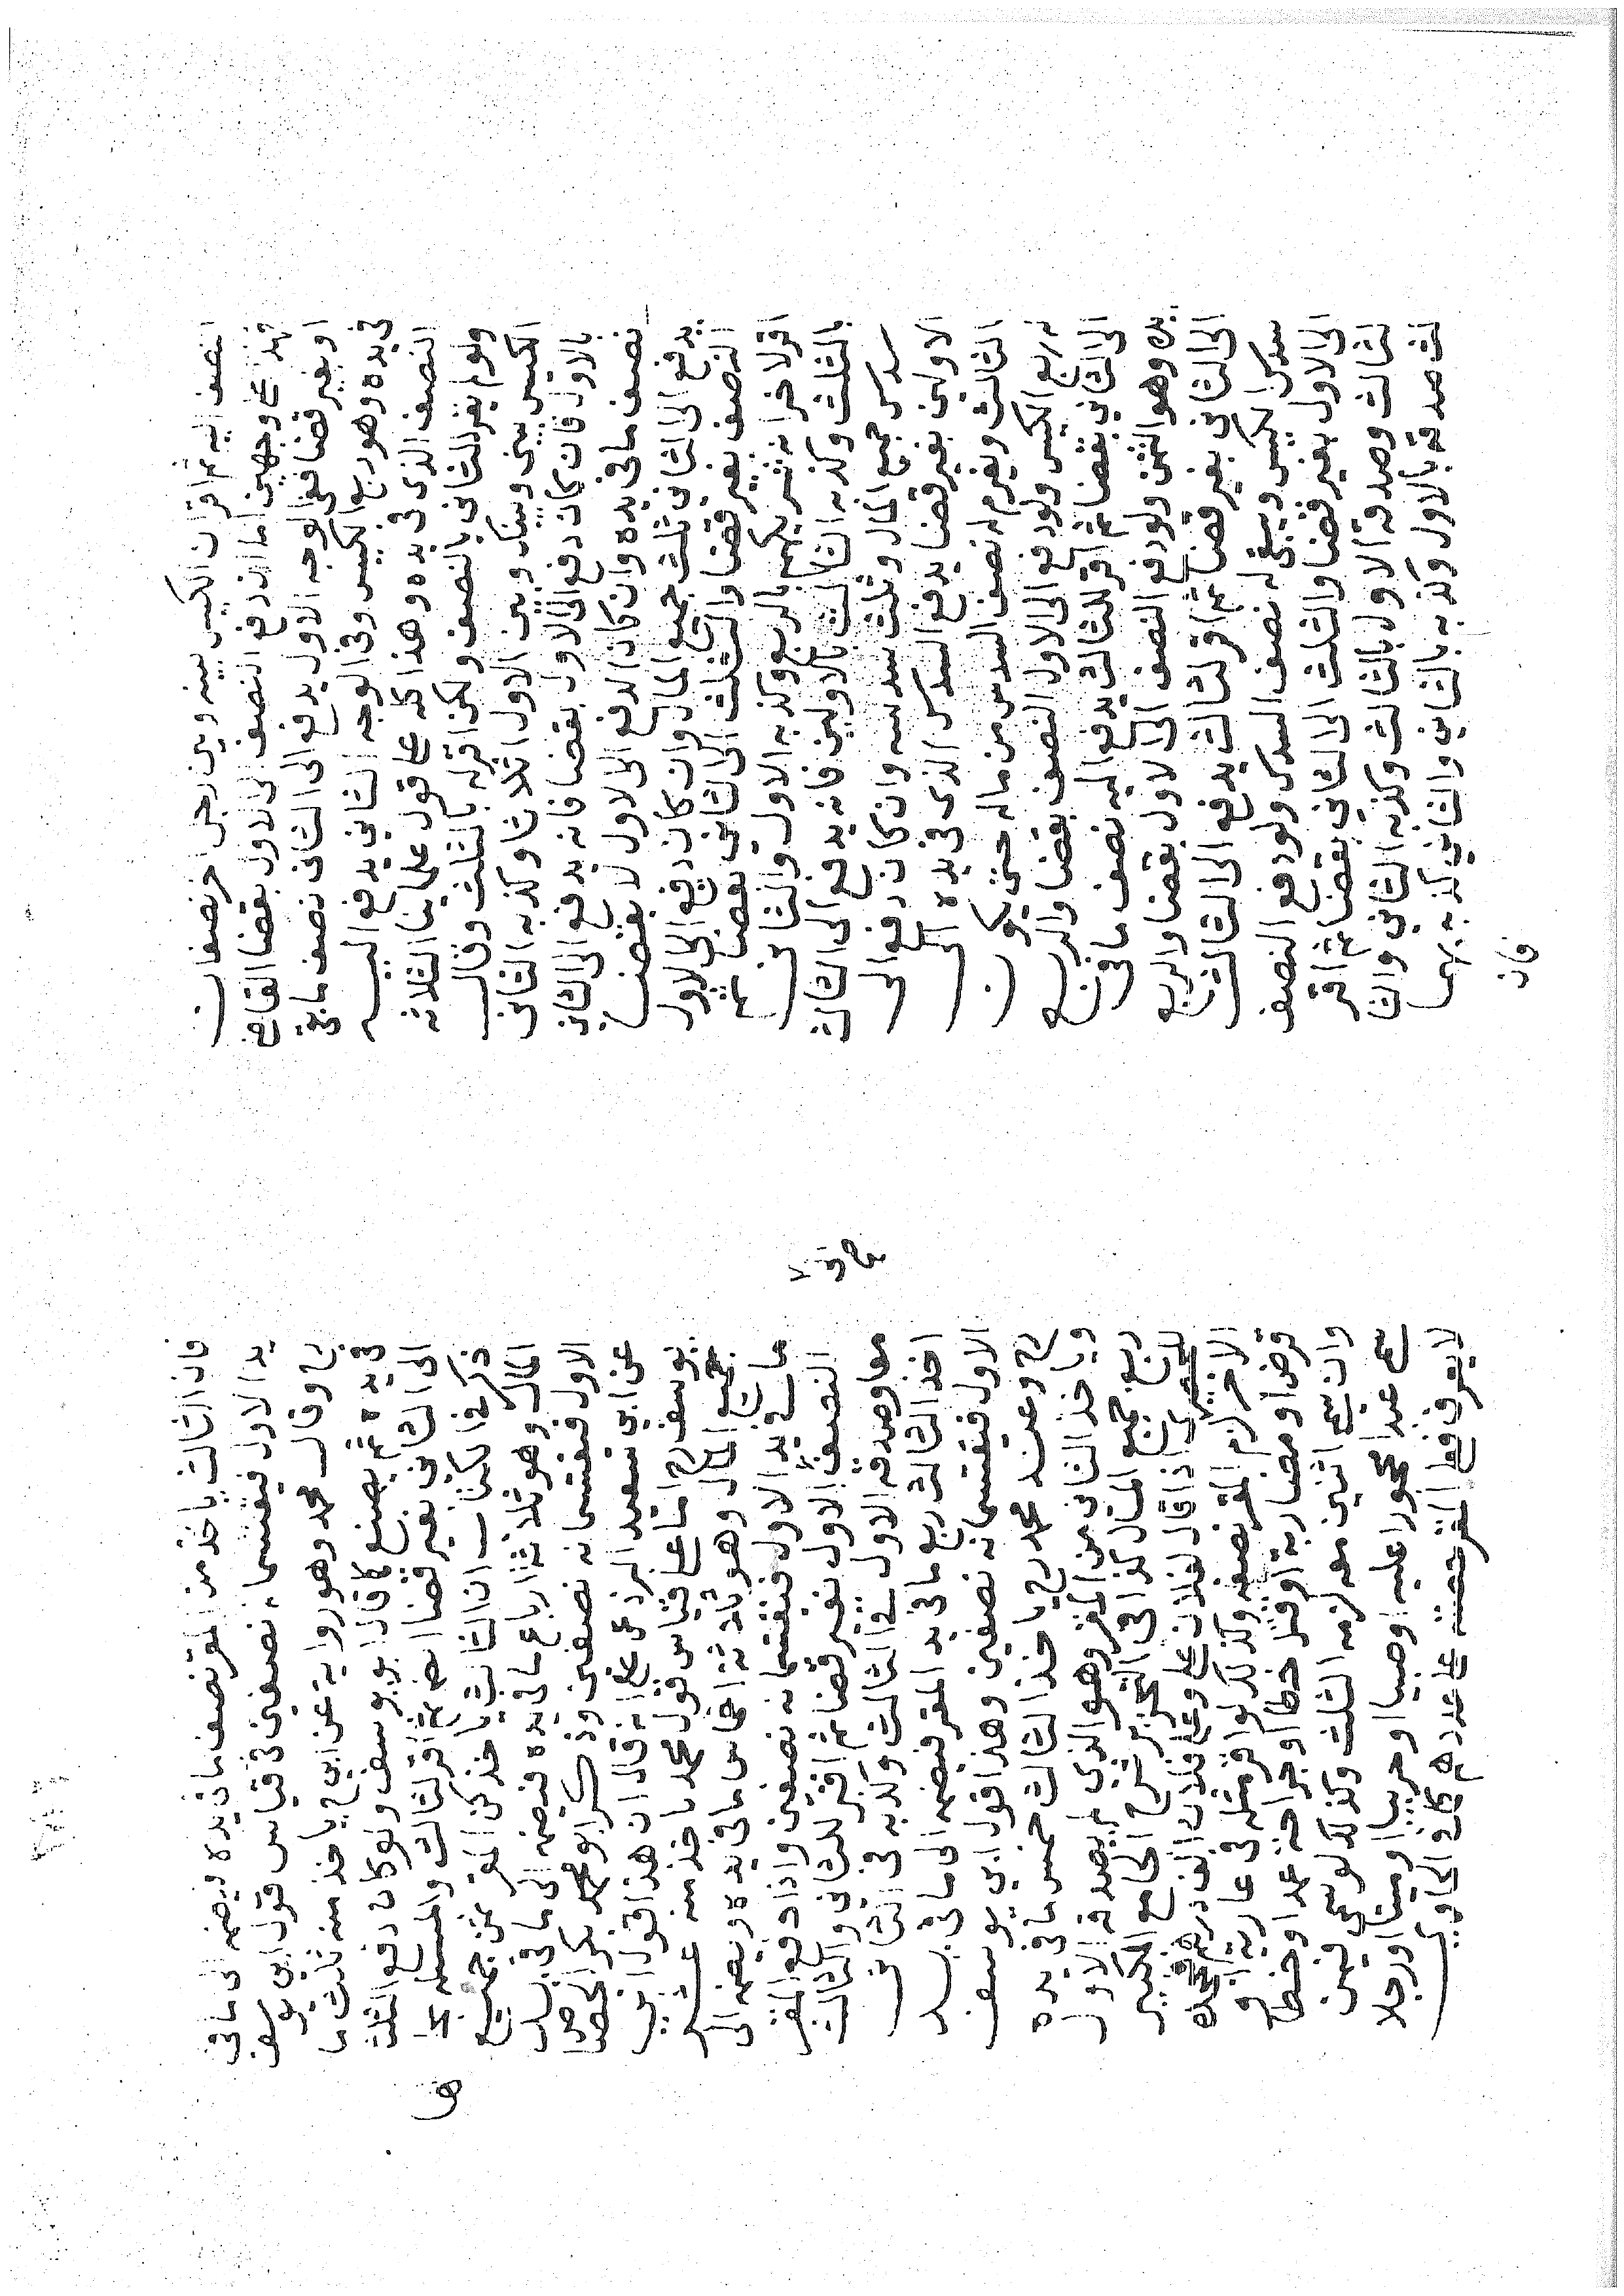 النصف اليه ثم اقر ان الكيس بينه وبين رجل اخر نصفان
فهذا على وجهين اما ان دفع النصف الى الاول بقضا القاضي
او بغير قضا ففي الوجه الاول يدفع الى الثاني نصف ما بقي
في يده وهو ربع الكيس وفي الوجه الثاني يدفع اليه
النصف الذي في يده وهذا كله على قول علمائنا الثلاثه
ولو لم يقر للثاني بالنصف ولكن اقر له بالثلث وقال
الكيس بيني وبينك وبين الاول اثلاثا وكذبه الثاني
بالاول فان كان دفع الى الاول بقضا فانه يدفع الى الثاني
نصف ما في يده وان كان الدفع الى الاول لا بقضا
يدفع الى الثاني ثلث جميع المال وان كان دفع الى الاول
النصف بغير قضا والثلث الى الثاني بقضا ثم
اقر لاخر انه شريكهم بالربع وكذبه الاول والثاني
بالثلث وكذبه الثالث بالاولين فانه يدفع الى الثالث
سدس جميع المال وثلث سدسه وان كان دفع الى
الاولين بغير قضا يدفع السدس الذي في يده الى
الثالث ويغرم له نصف السدس من ماله حتى يكون
له ربع الكيس ولو دفع الى الاول النصف بقضا والربع
الى الثاني بقضا ثم اقر للثالث يدفع اليه نصف ما في
يده وهو الثمن ولو دفع النصف الى الاول بقضا والربع
الى الثاني بغير قضا ثم اقر لثالث يدفع الى الثالث
سدس الكيس ويبقى له نصف السدس ولو دفع النصف
الى الاول بغير قضا والثلث الى الثاني بقضا ثم اقر
لثالث وصدقه الاول بالثالث وكذبه الثاني والثا
لث صدقه بالاول وكذبه بالثاني والثاني كذبه بهما
فان
فان الثالث ياخذ من المقر نصف ما في يده ويضمه الى ما في
يد الاول فيقتسمانه نصفين في قياس قول ابي يوسف
رح وقال محمد وهو رواية عن ابي ح ياخذ منه ثلث ما
في يده ثم يصنع كما قال ابو يوسف ولو كان دفع الثلث
الى الثاني بغير قضا ثم اقر لثالث والمسئلة بحا
ذكر في الكتاب ان الثالث ياخذ من المقر ثمن جميع
المال وهو ثلاثة ارباع ما في يده فيضمه الى ما في يد
الاول فيقتسمانه نصفين وذكر ابو محمد بكر الجصاص
عن ابي سعيد البردعي انه قال ان هذا قول ابي
يوسف رح اما على قياس قول محمد ياخذ منه عشر
جميع المال وهو ثلاثة اخماس ما في يده ويضمه الى
ما في يد الاول فيقتسمانه نصفين واذا دفع المقر
النصف الاول بغير قضا ثم اقر للثاني والثالث
معا وصدقه الاول في الثالث وكذبه في الثاني
اخذ الثالث ربع ما في يد المقر فيضمه الى ما في يد
الاول فيقتسمانه نصفين وهذا قول ابي يوسف
رح وعند محمد رح ياخذ الثالث خمس ما في يده
وياخذ الثاني من المقر وهو الذي لم يصدقه الاول
ربع جميع المال كذا في التحرير شرح الجامع الكبير
اذا قال لفلان علي وعلى فلان الف درهم فجحد
الاخر لزم المقر نصفه وكذلك لو اقر مثله في عارية او
قرض او مضاربة او قتل خطا او جراحة عمدا وخطا
وان سمى اثنين معه لزمه الثلث وكذلك لو سمى فيهن
عبدا محجورا عليه او صبيا او حربيا او ميتا او رجلا
لا يعرف فعلى المقر حصته على عددهم كذا في الحاوي